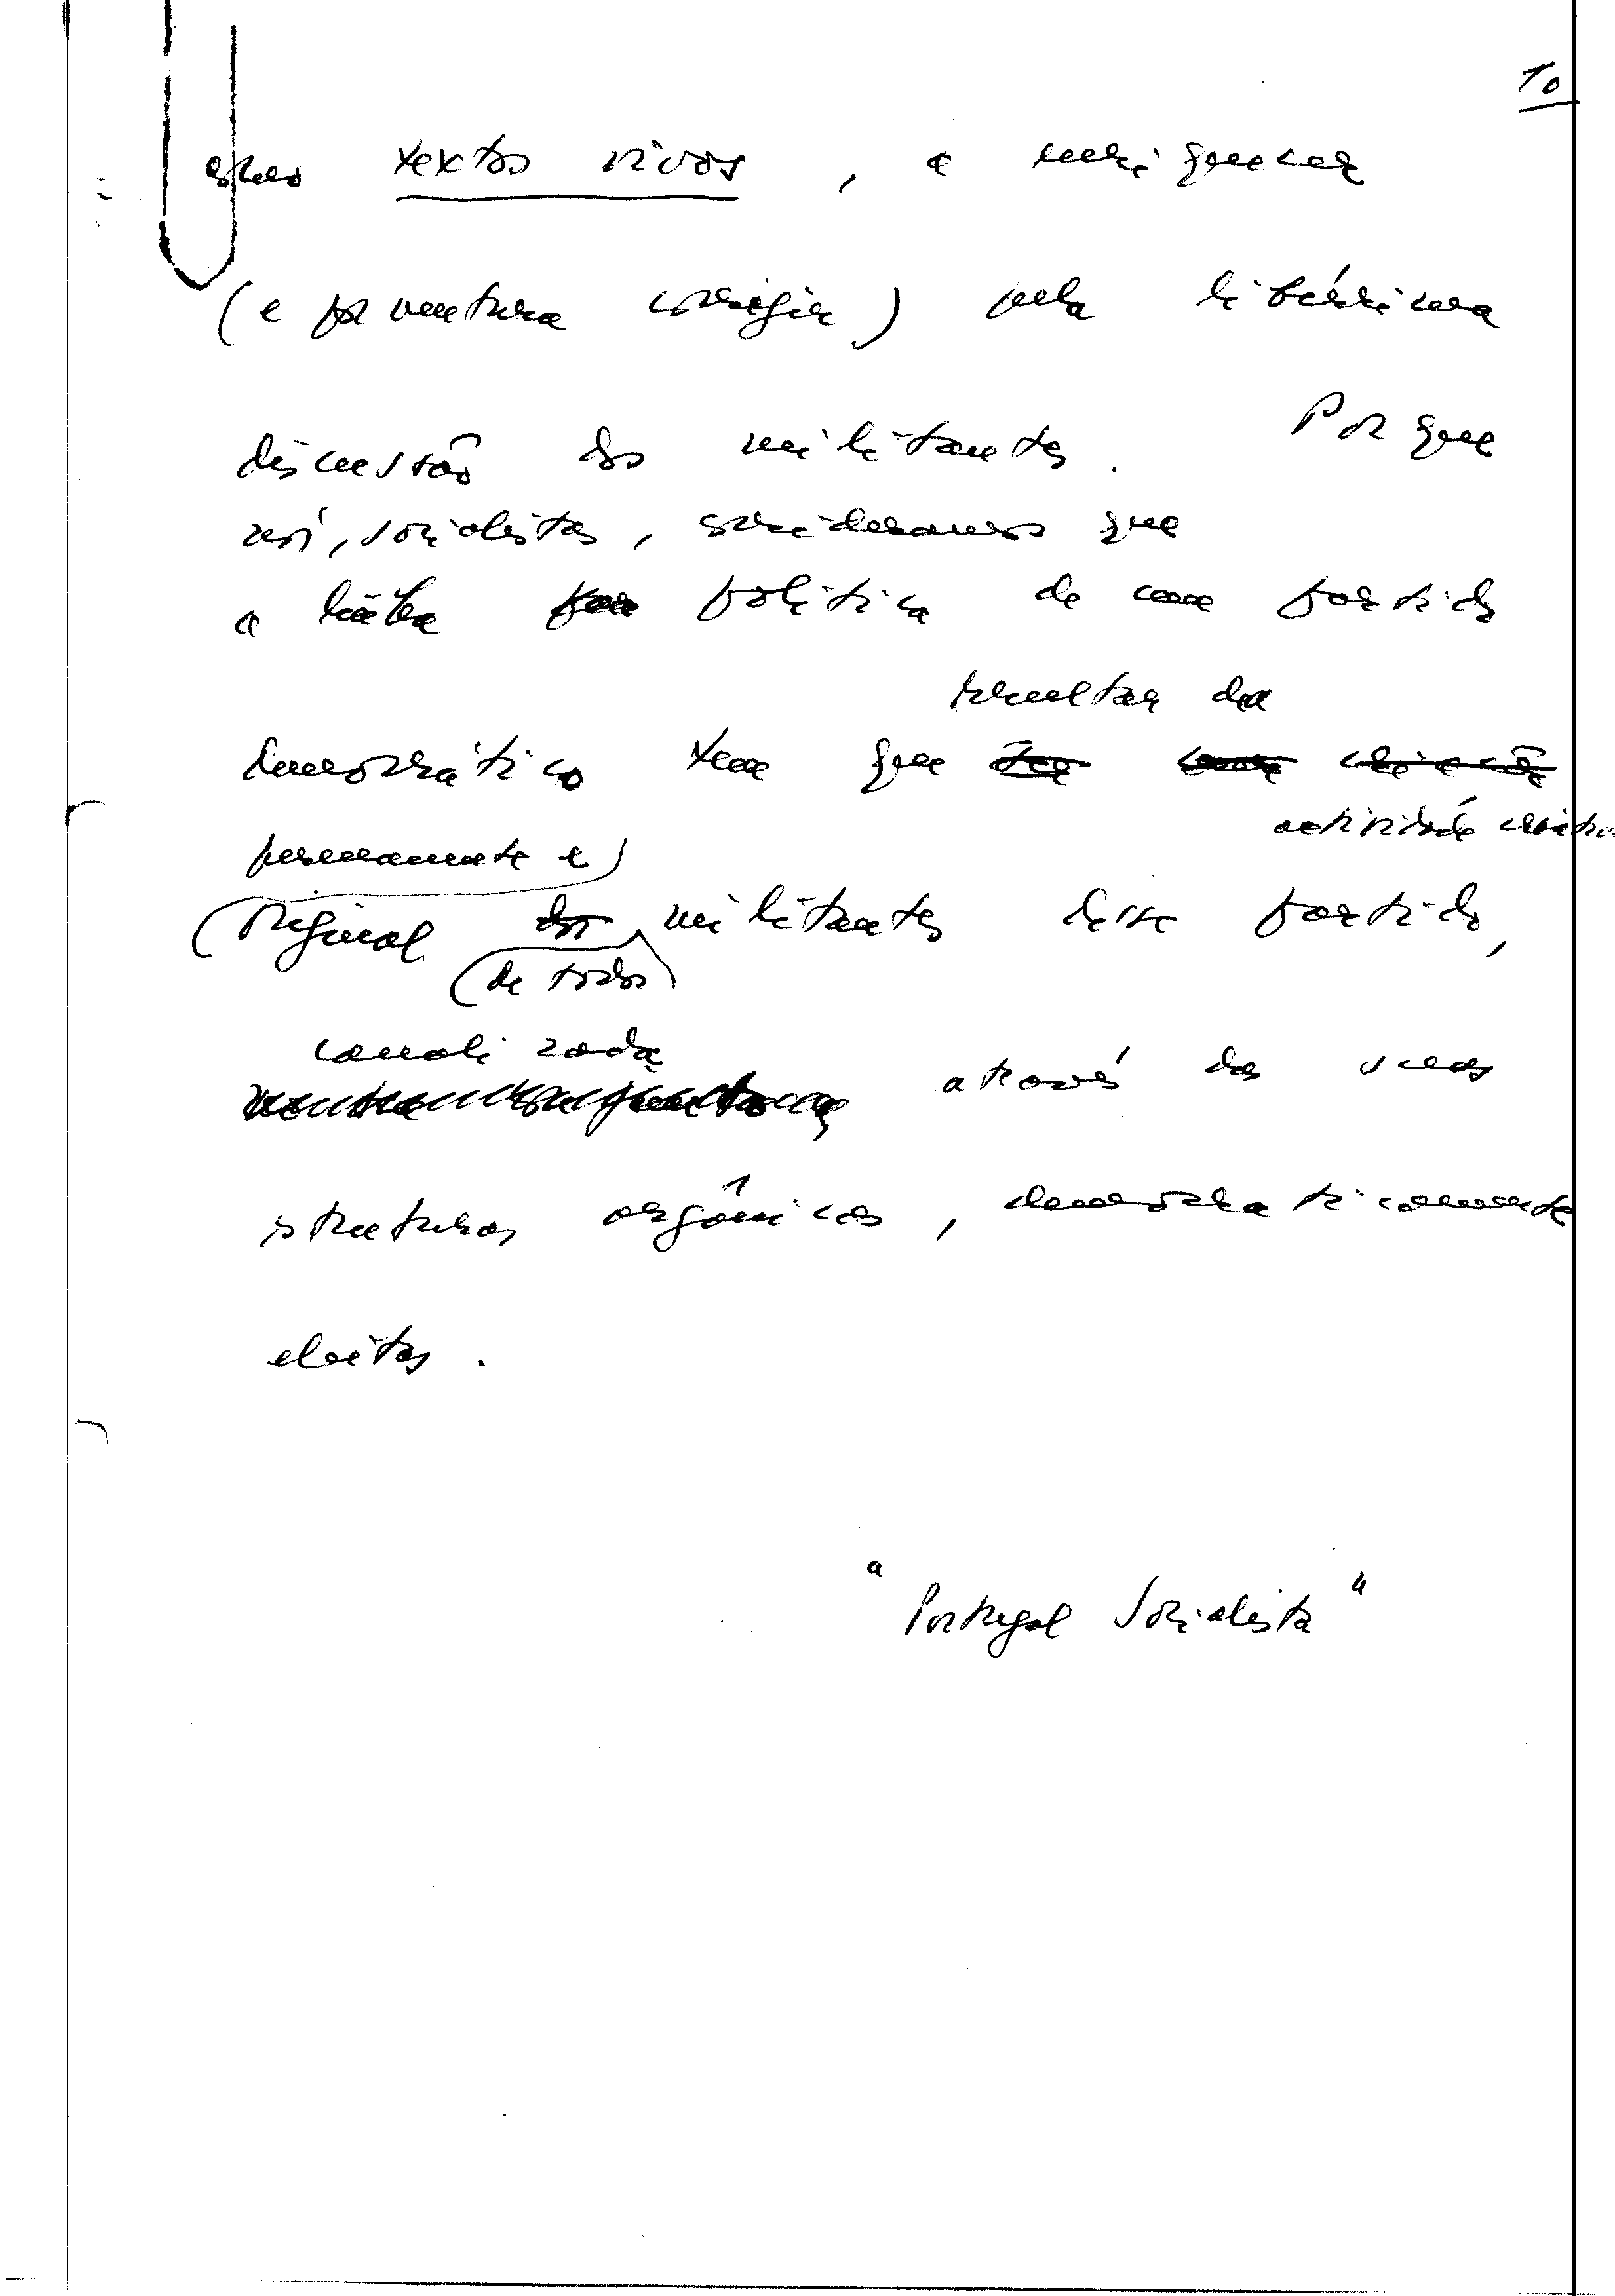 10
textos vivos, a enriquecer
(e porventura corrigir) pela libérrima
discussão dos militantes. Porque
nós, socialistas, consideramos que
a linha política de um partido
resultar da
democrático tem que
actividade
permanente e
original dos militantes desse partido,
de todos
canalizada
através das suas
estruturas orgânicas, democraticamente
eleitas.
"Portugal Socialista"